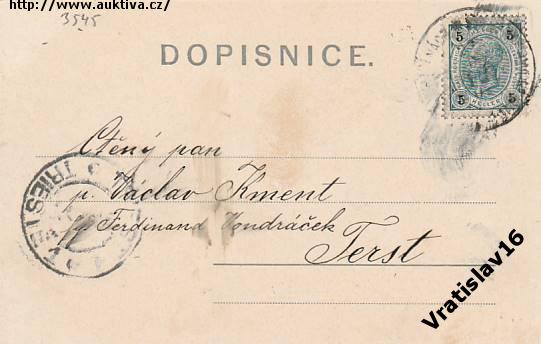 http://www.auktiva.cz/
3545
DOPISNICE.
5 5
5 5
Ctěný pan
p. Václav Kment
Ferdinand Vondráček
Terst
TRIEST
Vratislav16